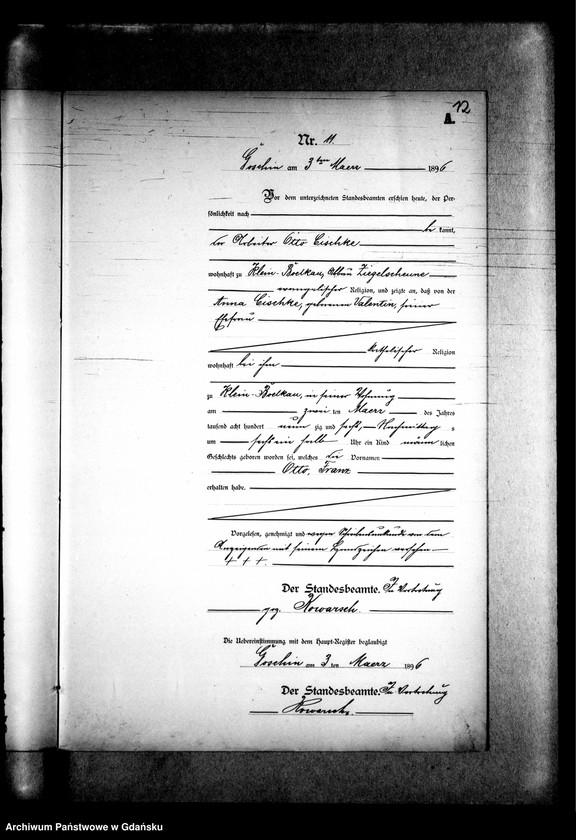 12
A.
Nr. 11.
Goschin am 3ten Maerz 1896
Vor dem unterzeichneten Standesbeamten erschien heute, der Per-
sönlichkeit nach
be kannt,
der Arbeiter Otto Cischke
wohnhaft zu Klein-Boelkau, Ziegelscheune
evangelischer Religion, und zeigte an, daß von der
Anna Cischke, geborenen Valentin, seiner
Ehefrau
katholischer Religion
wohnhaft bei ihm
zu Klein-Boelkau, in seiner Wohnung
am zwei ten Maerz des Jahres
tausend acht hundert neun zig und sechs, Nachmittag s
um sechs ein halb Uhr ein Kind männ lichen
Geschlechts geboren worden sei, welches die Vornamen
Otto, Franz
erhalten habe.
Vorgelesen, genehmigt und wegen Schreibensunkunde von dem
Anzeigenden mit seinem Handzeichen versehen
+ + +
Der Standesbeamte. In Vertretung
gez. Kowarsch.
Die Uebereinstimmung mit dem Haupt-Register beglaubigt
Goschin am 3 ten Maerz 1896
Der Standesbeamte. In Vertretung
Kowarsch.
Archiwum Państwowe w Gdańsku